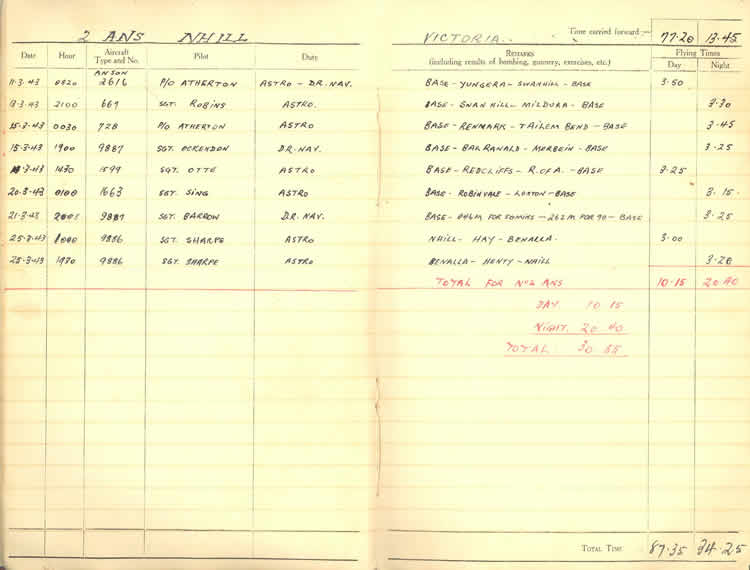 2 ANS NHILL VICTORIA. Time carried forward:— 77·20 13·45
Date Hour Aircraft Type and No. Pilot Duty Remarks (including results of bombing, gunnery, exercises, etc.) Flying Times Day Night
ANSON
11·3·43 0820 2616 P/O ATHERTON ASTRO - DR. NAV. BASE - YUNGERA - SWANHILL - BASE 3·50
13·3·43 2100 669 SGT. ROBINS ASTRO. BASE - SWAN HILL - MILDURA - BASE 3·30
15·3·43 0030 728 P/O ATHERTON ASTRO BASE - RENMARK - TAILEM BEND - BASE 3·45
15·3·43 1900 9887 SGT. DR. NAV. BASE - BALRANALD - MERBEIN - BASE 3·25
·3·43 1430 1599 SGT. OTTE ASTRO BASE - REDCLIFFS - R.OF A. - BASE 3·25
20·3·43 0100 1663 SGT. SING ASTRO BASE - ROBINVALE - LOXTON - BASE 3·15
21·3·43 9887 SGT. BARROW D.R. NAV. BASE - 046 M FOR 50 MINS - 262 M FOR 90 - BASE 3·25
25·3·43 9886 SGT. SHARPE ASTRO NHILL - HAY - BENALLA. 3·00
25·3·43 1930 9886 SGT. SHARPE ASTRO BENALLA - HENTY - NHILL 3·20
TOTAL FOR No 2 ANS 10·15 20·40
DAY 10 15
NIGHT. 20 40
TOTAL 30 55
TOTAL TIME 87·35 34·25